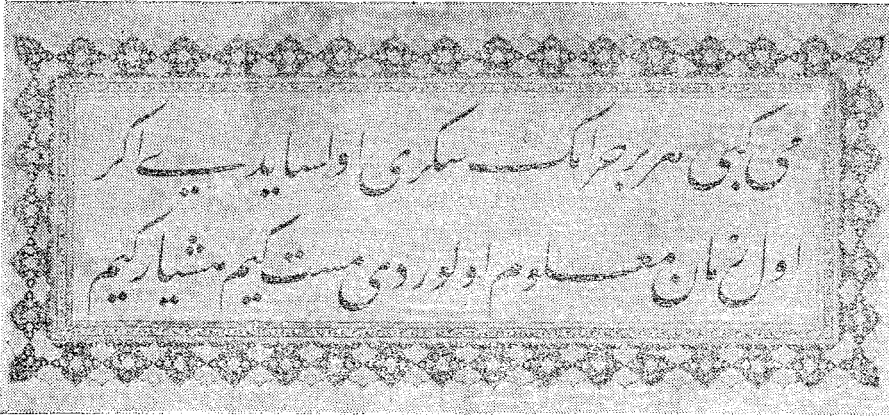 می کبی هر بر حرامک سکری اولسایدی اکر
اول زمان معلوم اولوردی مست کیم هشیار کیم